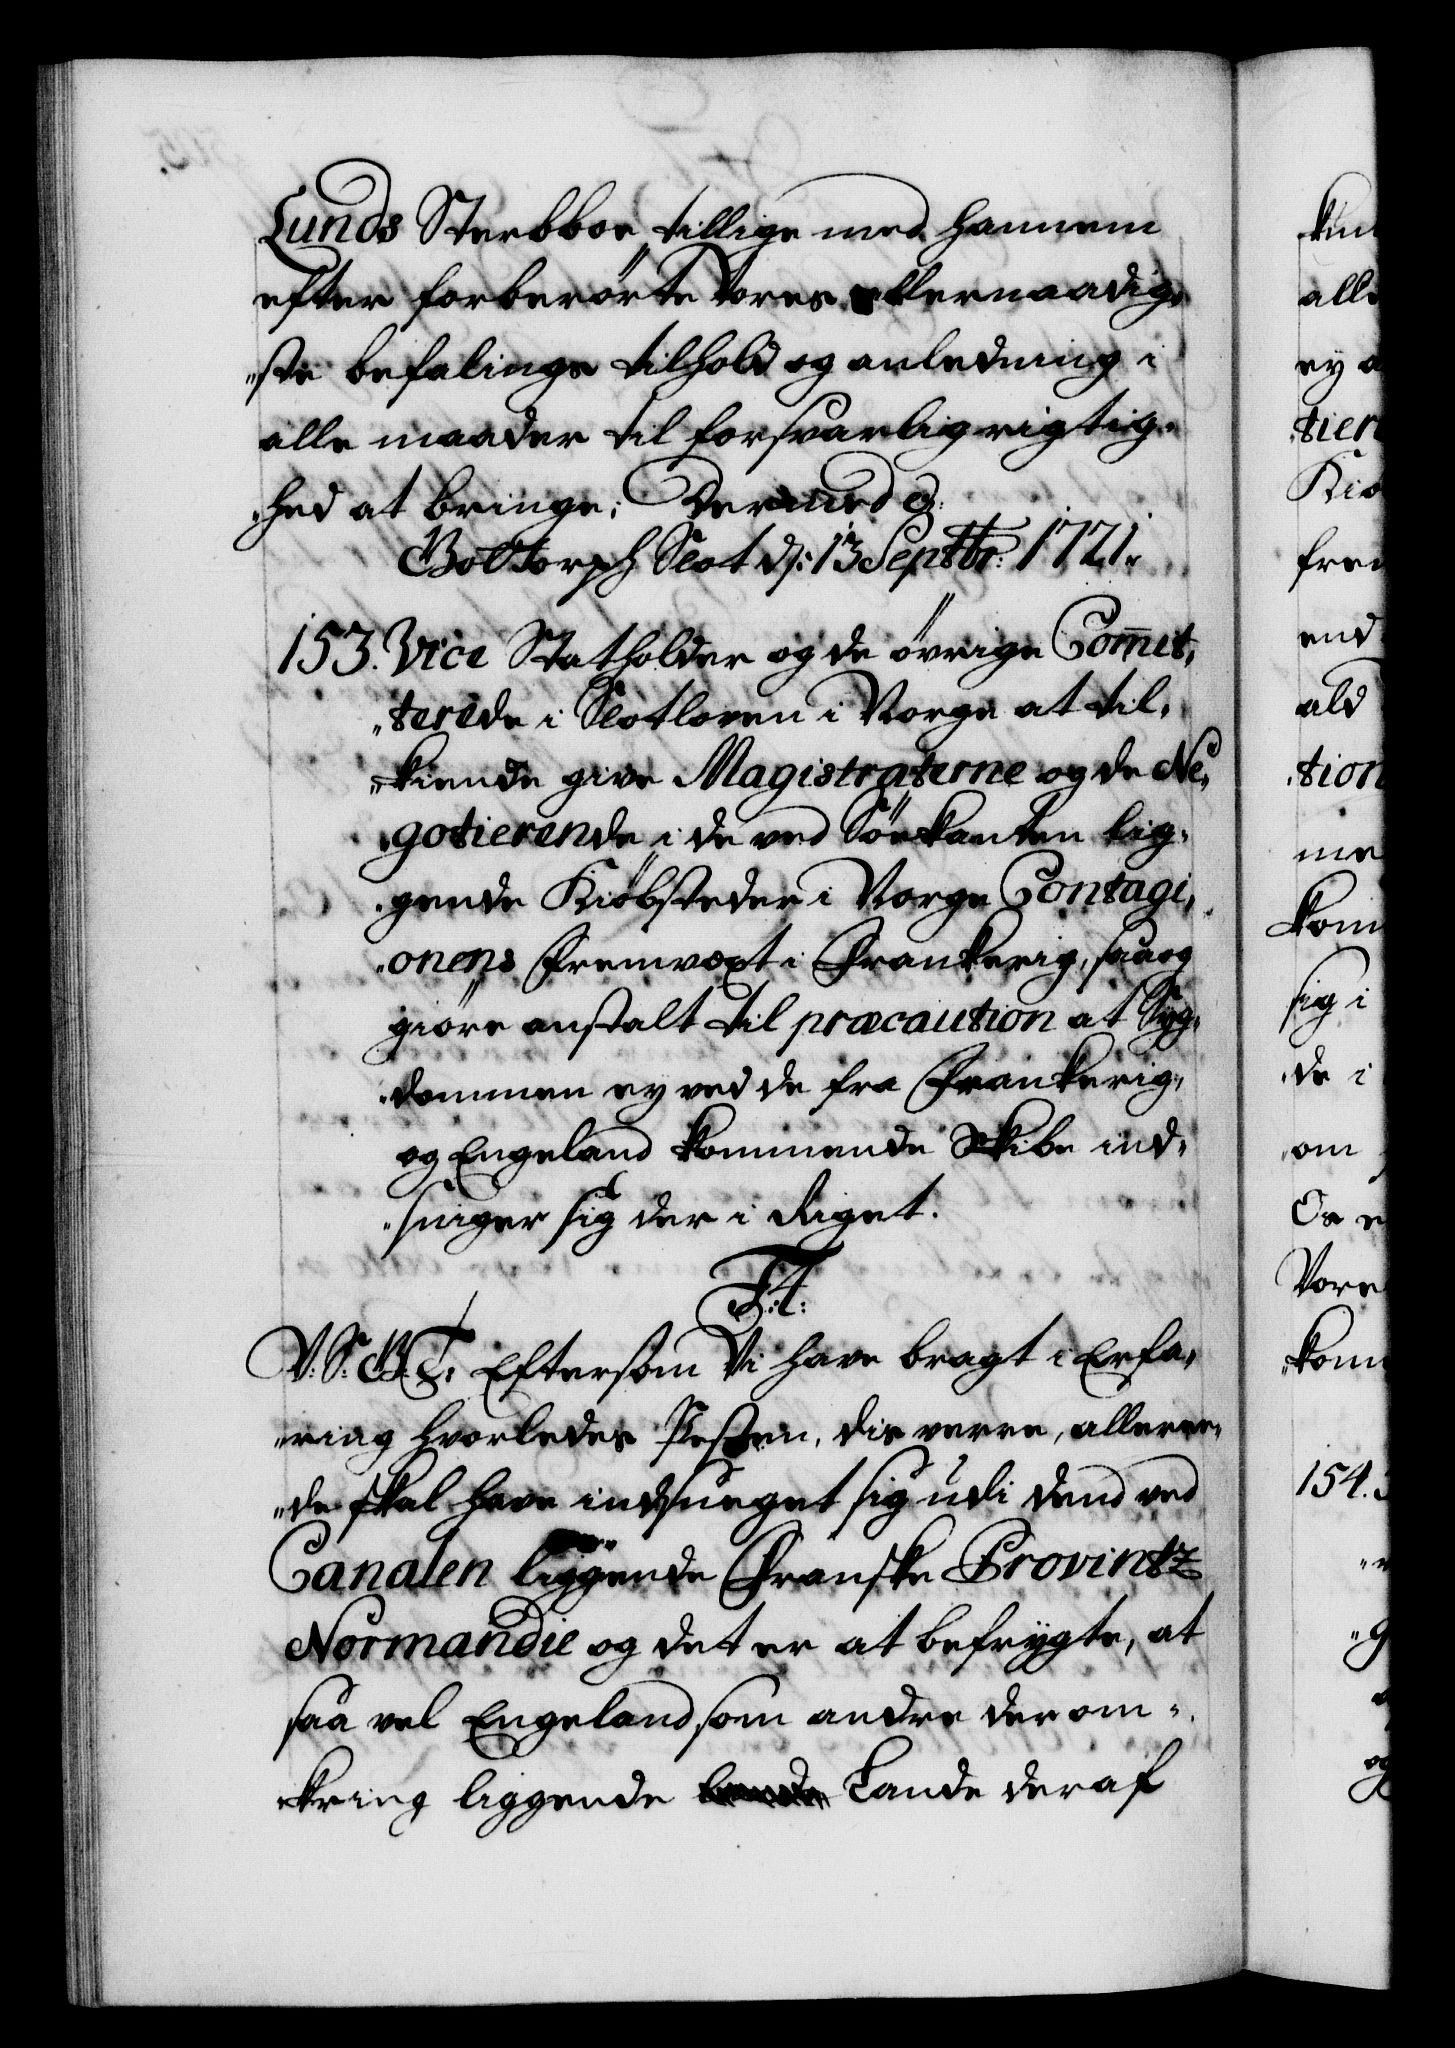 Lunds Sterbboe tillige med hannem
efter forberørte Vores allernaadig„
„ste befalings tilhold og anledning i
alle maader til forsvarlig rigtig„
„hed at bringe; Dermed &:
Gottorph Slot d: 13 Septbr: 1721.
153. Vice Statholder og de øvrige Com̄it„
„terede i Slotloven i Norge at til„
„kiende give Magistraterne og de Ne„
„gotierende i de ved Søekanten lig„
„gende Kiøbsteder i Norge Contagi„
„onens Fremvext i Frankerig, saa og
giøre anstalt til præcaution at Syg„
„dommen ey ved de fra Frankerig,
og Engeland kommende Skibe ind„
„sniger sig der i Riget.
F: 4:
V. S. G. T: Eftersom Vi have bragt i Erfa„
„ring hvorledes Pesten, dis verre, alleree„
„de skal have indsneget sig udi dend ved
Canalen liggende Franske Provintz
Normandie og det er at befrygte, at
saa vel Engeland som andre der om„
„kring liggende Lande deraf
kun
alle
ey a
„tiere
Kiø
frem
end
ald
„tion
me
kom
sig i
„de i
om
Os e
Vore
„kom
154.
og